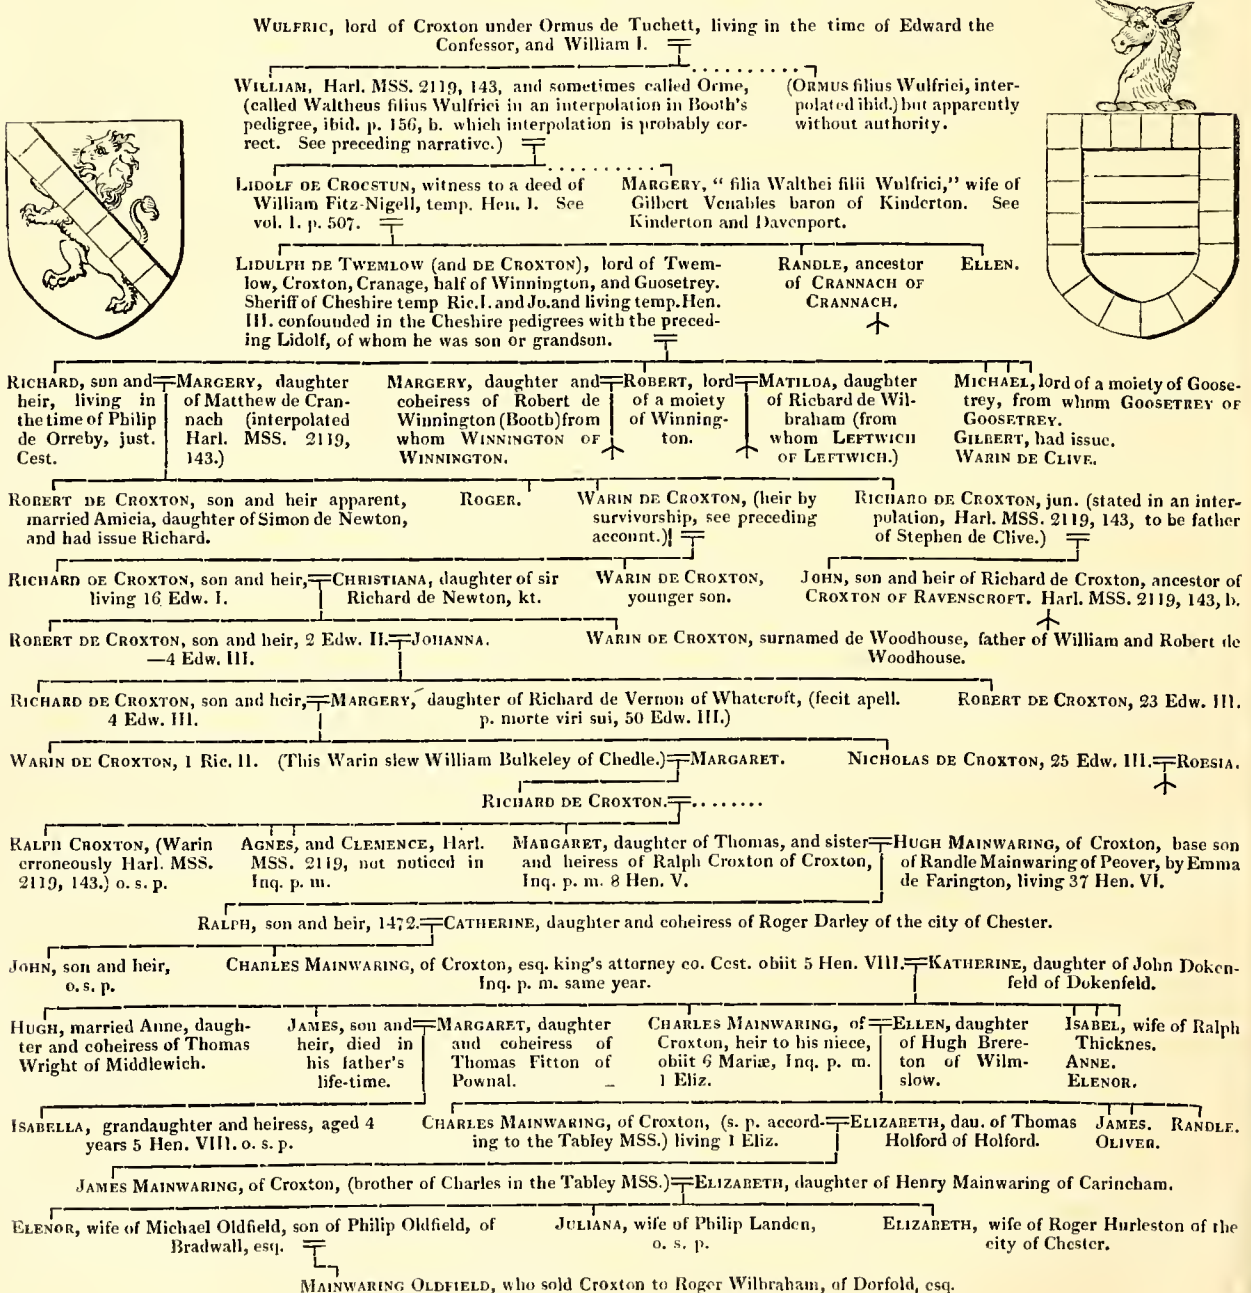 WULFRIC, lord of Croxton under Ormus de Tuchett, living in the time of Edward the
Confessor, and William I.
WILLIAM, Harl. MSS. 2119, 143, and sometimes called Orme,
(called Waltheus filius Wulfrici in an interpolation in Booth's
pedigree, ibid. p. 156, b. which interpolation is probably cor-
rect. See preceding narrative.)
(ORMUS filius Wulfrici, inter-
polated ibid.) but apparently
without authority.
LIDOLF DE CROCSTUN, witness to a deed of
William Fitz-Nigell, temp. Hen. I. See
vol. I. p. 507.
MARGERY, “ filia Walthei filii Wulfrici,” wife of
Gilbert Venables baron of Kinderton. See
Kinderton and Davenport.
LIDULPH DE TWEMLOW (and DE CROXTON), lord of Twem-
low, Croxton, Cranage, half of Winnington, and Guosetrey.
Sheriff of Cheshire temp Ric. I. and Jo. and living temp. Hen.
III. confounded in the Cheshire pedigrees with the preced-
ing Lidolf, of whom he was son or grandson.
RANDLE, ancestor
of CRANNACH of
CRANNACH.
ELLEN.
RICHARD, son and
heir, living in
the time of Philip
de Orreby, just.
Cest.
MARGERY, daughter
of Matthew de Cran-
nach (interpolated
Harl. MSS. 2119,
143.)
MARGERY, daughter and
coheiress of Robert de
Winnington (Booth) from
whom WINNINGTON OF
WINNINGTON.
ROBERT, lord
of a moiety
of Winning-
ton.
MATILDA, daughter
of Richard de Wil-
braham (from
whom LEFTWICH
OF LEFTWICH.)
MICHAEL, lord of a moiety of Goose-
trey, from whom GOOSETREY OF
GOOSETREY.
GILBERT, had issue.
WARIN DE CLIVE.
ROBERT DE CROXTON, son and heir apparent,
married Amicia, daughter of Simon de Newton,
and had issue Richard.
ROGER.
WARIN DE CROXTON, (heir by
survivorship, see preceding
account.)
RICHARD DE CROXTON, jun. (stated in an inter-
polation, Harl. MSS. 2119, 143, to be father
of Stephen de Clive.)
RICHARD DE CROXTON, son and heir,
living 16 Edw. I.
CHRISTIANA, daughter of sir
Richard de Newton, kt.
WARIN DE CROXTON,
younger son.
JOHN, son and heir of Richard de Croxton, ancestor of
CROXTON OF RAVENSCROFT. Harl. MSS. 2119, 143, b.
ROBERT DE CROXTON, son and heir, 2 Edw. II.
—4 Edw. III.
JOHANNA.
WARIN DE CROXTON, surnamed de Woodhouse, father of William and Robert de
Woodhouse.
RICHARD DE CROXTON, son and heir,
4 Edw. III.
MARGERY, daughter of Richard de Vernon of Whatcroft, (fecit apell.
p. morte viri sui, 50 Edw. III.)
ROBERT DE CROXTON, 23 Edw. III.
WARIN DE CROXTON, 1 Ric. II. (This Warin slew William Bulkeley of Chedle.)
MARGARET.
NICHOLAS DE CROXTON, 25 Edw. III.
ROESIA.
RICHARD DE CROXTON.
........
RALPH CROXTON, (Warin
erroneously Harl. MSS.
2119, 143.) o. s. p.
AGNES, and CLEMENCE, Harl.
MSS. 2119, not noticed in
Inq. p. m.
MARGARET, daughter of Thomas, and sister
and heiress of Ralph Croxton of Croxton,
Inq. p. m. 8 Hen. V.
HUGH MAINWARING, of Croxton, base son
of Randle Mainwaring of Peover, by Emma
de Farington, living 37 Hen. VI.
RALPH, son and heir, 1472.
CATHERINE, daughter and coheiress of Roger Darley of the city of Chester.
JOHN, son and heir,
o. s. p.
CHARLES MAINWARING, of Croxton, esq. king's attorney co. Cest. obiit 5 Hen. VIII.
Inq. p. m. same year.
KATHERINE, daughter of John Doken-
feld of Dokenfeld.
HUGH, married Anne, daugh-
ter and coheiress of Thomas
Wright of Middlewich.
JAMES, son and
heir, died in
his father's
life-time.
MARGARET, daughter
and coheiress of
Thomas Fitton of
Pownal.
CHARLES MAINWARING, of
Croxton, heir to his niece,
obiit 6 Mariæ, Inq. p. m.
1 Eliz.
ELLEN, daughter
of Hugh Brere-
ton of Wilm-
slow.
ISABEL, wife of Ralph
Thicknes.
ANNE.
ELENOR.
ISABELLA, grandaughter and heiress, aged 4
years 5 Hen. VIII. o. s. p.
CHARLES MAINWARING, of Croxton, (s. p. accord-
ing to the Tabley MSS.) living 1 Eliz.
ELIZABETH, dau. of Thomas
Holford of Holford.
JAMES.
OLIVER.
RANDLE.
JAMES MAINWARING, of Croxton, (brother of Charles in the Tabley MSS.)
ELIZABETH, daughter of Henry Mainwaring of Carincham.
ELENOR, wife of Michael Oldfield, son of Philip Oldfield, of
Bradwall, esq.
JULIANA, wife of Philip Landen,
o. s. p.
ELIZABETH, wife of Roger Hurleston of the
city of Chester.
MAINWARING OLDFIELD, who sold Croxton to Roger Wilbraham, of Dorfold, esq.